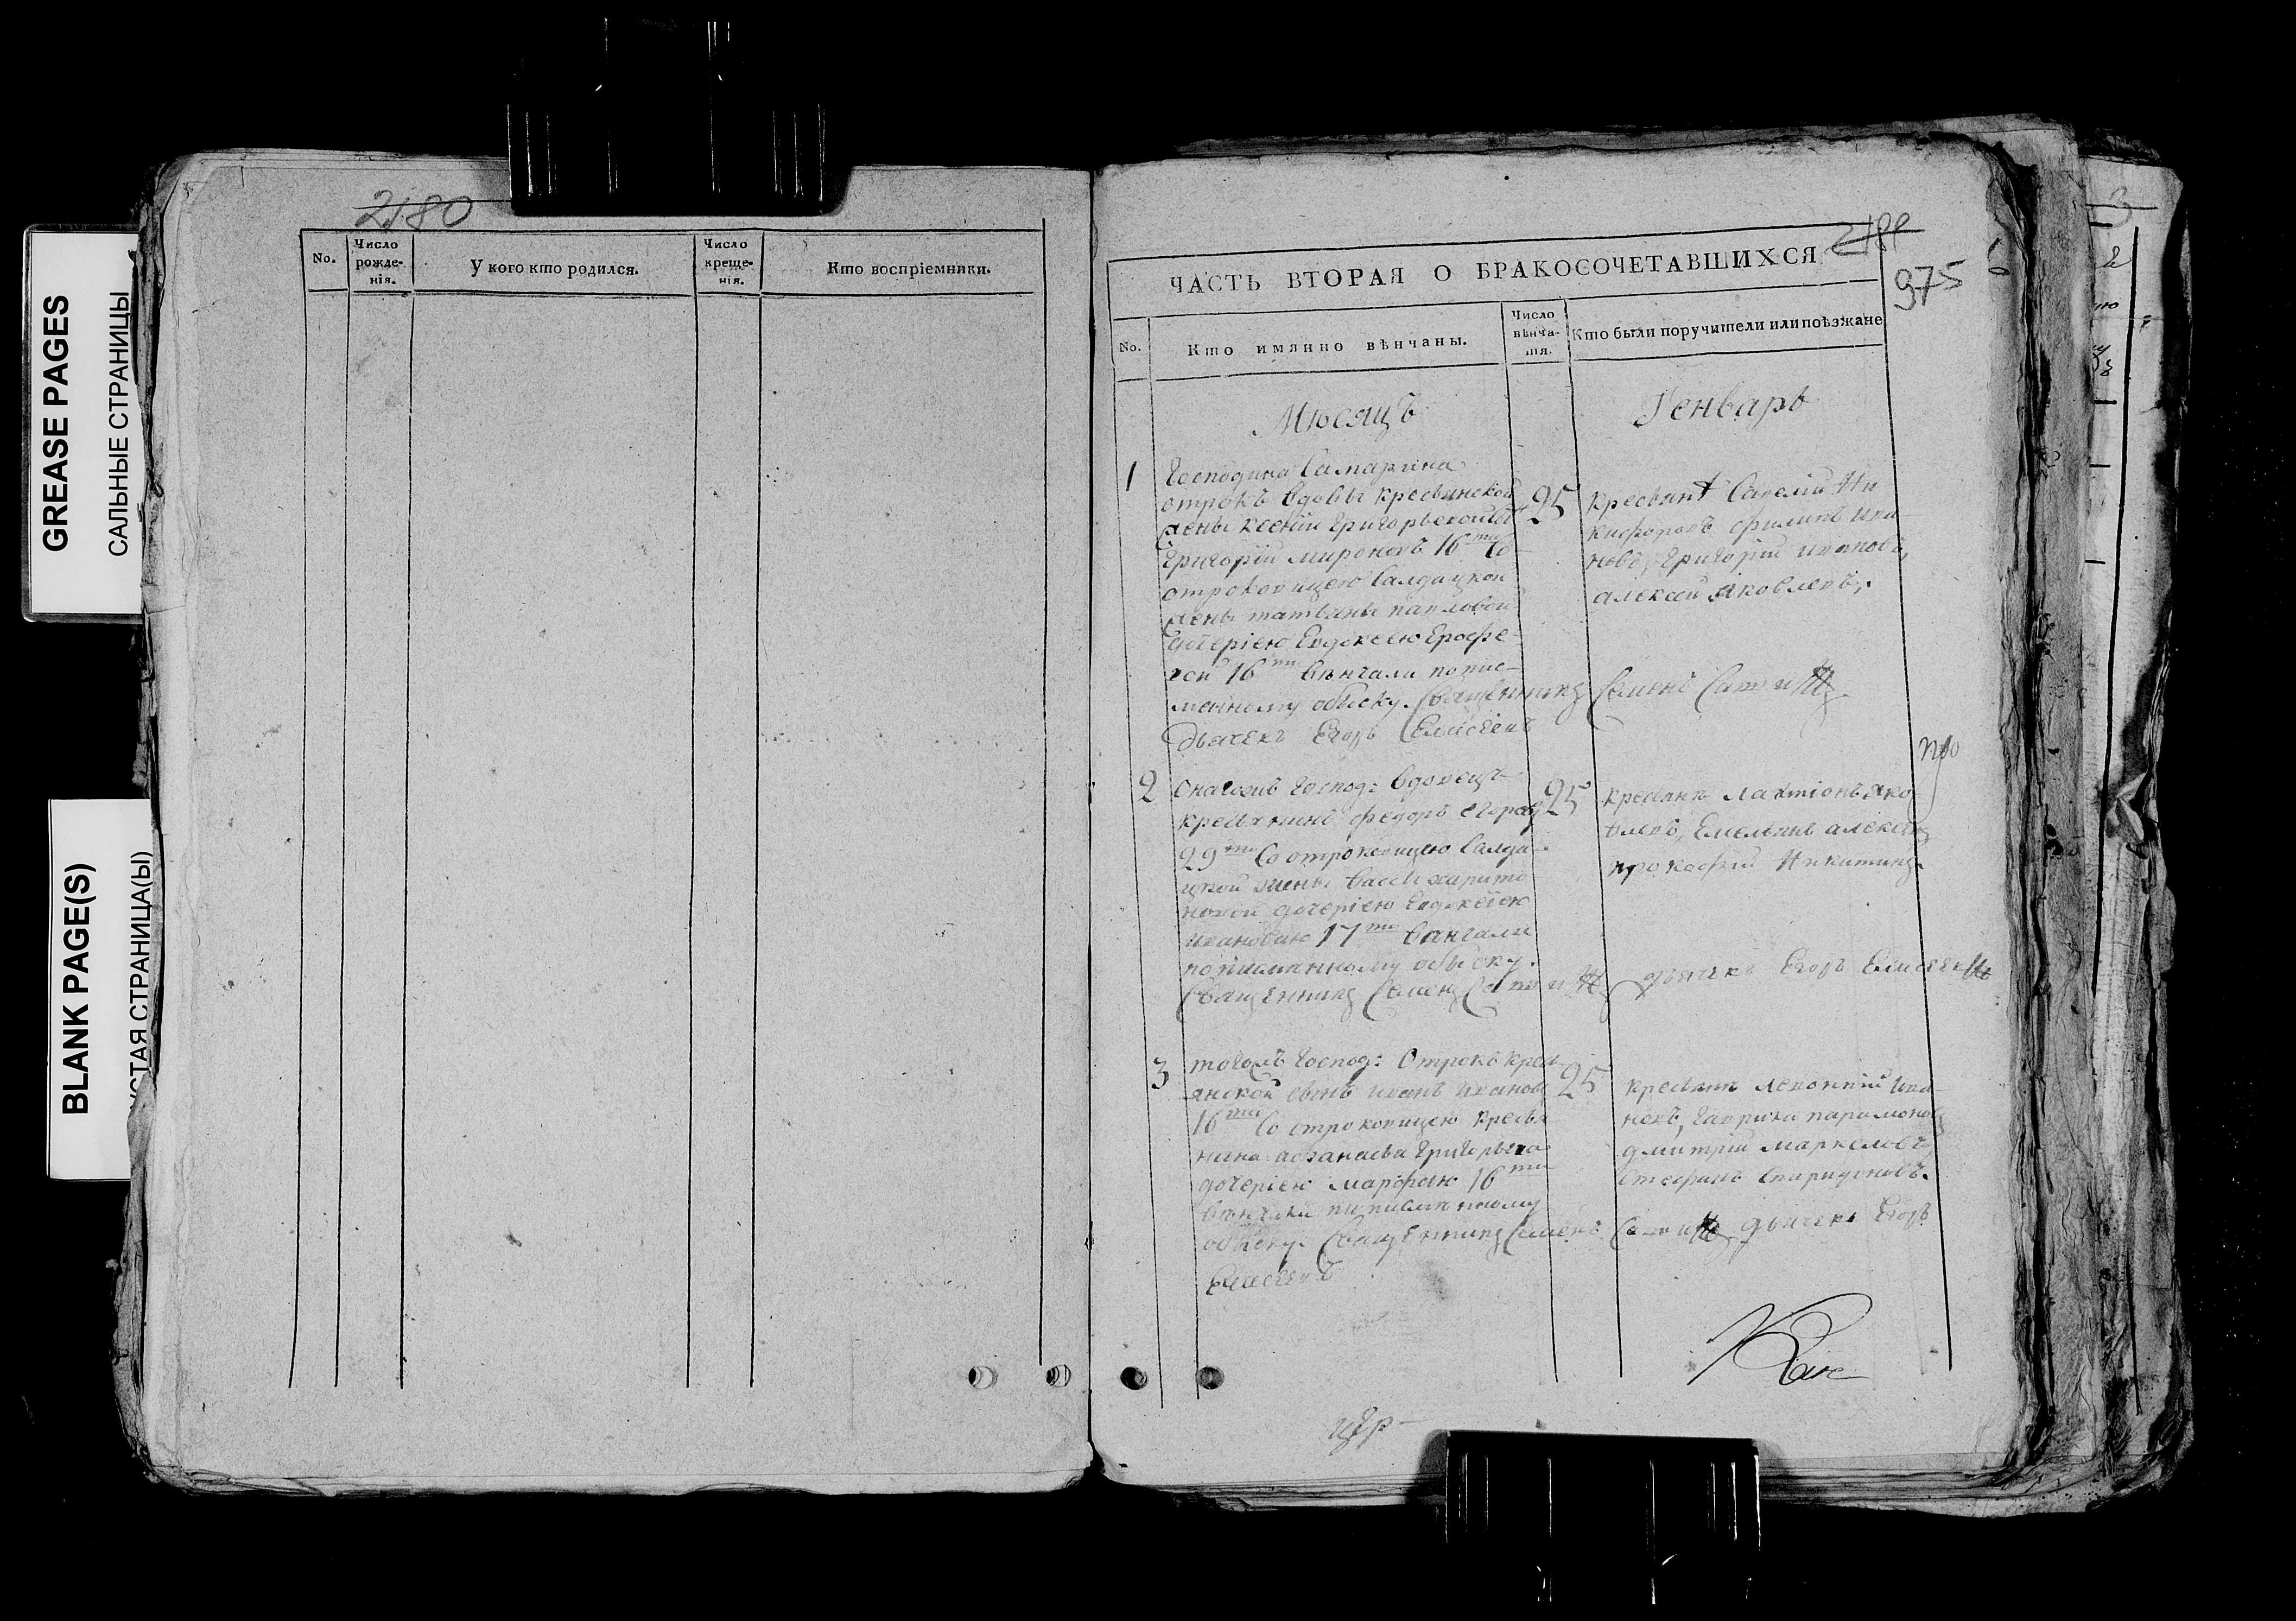 GREASE PAGES
САЛЬНЫЕ СТРАНИЦЫ
BLANK PAGE(S)
СТАЯ СТРАНИЦА(Ы)
2180
No.
Число рожде-нія.
У кого кто родился.
Число креще-нія.
Кто воспріемники.
975
ЧАСТЬ ВТОРАЯ О БРАКОСОЧЕТАВШИХСЯ
No.
Кто имянно вѣнчаны.
Число вѣнча-нія.
Кто были поручители или поѣзжане
Мѣсяцъ Генварь
1
Господина Самарина
отрокъ вдовы крестьянской
жены Ксеніи Григорьевой
Григорій Мироновъ 16
отроковицею Салдацкой
жены татьяны павловой
дочеріею Евдокѣею Ерофе-
вой 16 вѣнчали по пис-
менному обыску. Священникъ Семенъ
дьячекъ Егоръ Елисеевъ
25
крестьян Савелій Ни
кифоровъ филипъ ива-
новъ, григорій ивановъ,
алексей яковлевъ,
2
Онагожъ Господ: вдовецъ
крестьянинъ федоръ егоров
29 Со отроковицею Салда-
цкой жены харито
новой дочеріею Евдокѣею
ивановою 17 венчали
по писменному обыску.
Священникъ Семенъ дьячекъ Егоръ Елисеевъ
25
крестьянъ лактіонъ яко
влевъ, Емельянъ алексѣ
прокофій Никитинъ.
3
тогожъ Господ: Отрокъ крестъ
янской сынъ иванъ иванов
16 Со отроковицею крестья
нина афанасья григорьева
дочеріею марфою 16
вѣнчали по писменному
обыску. Священникъ Семенъ дьячекъ Егоръ
Елисеевъ
25
крестьянъ леонтій ива-
новъ, гаврила парамонов
дмитрій маркеловъ
стефанъ спиридоновъ.